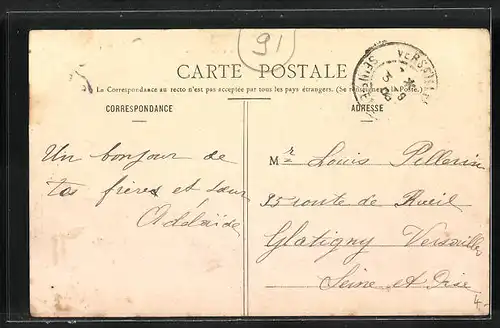 91
CARTE POSTALE
La Correspondance au recto n'est pas acceptée par tous les pays étrangers. (Se renseigner à la Poste.)
CORRESPONDANCE
ADRESSE
VERSAILLES
SEINE-ET-
Un bonjour de
tes frères et sœur
Adélaïde
Mr Louis Pellerin
95 route de Rueil
Glatigny Versailles
Seine et Oise
4-